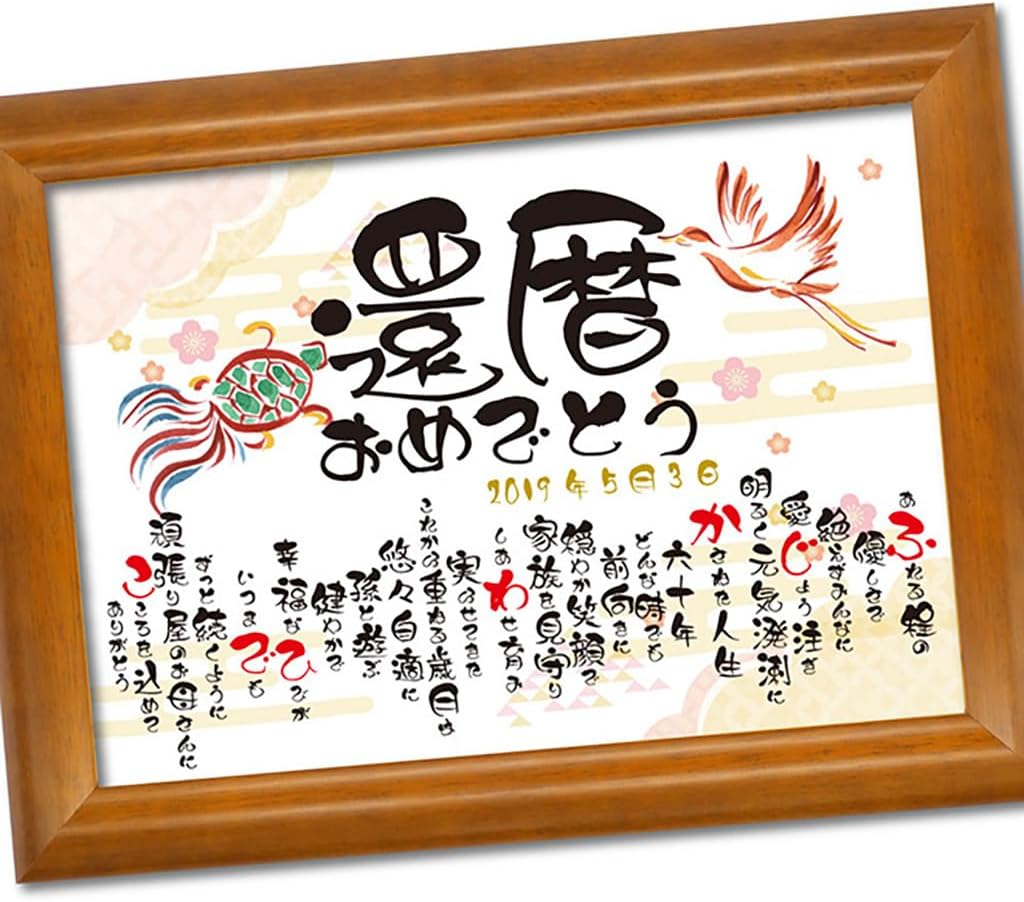 還暦
おめでとう
2019年5月3日
あふれる程の
優しさで
絶えずみんなに
愛じょう注ぎ
明るく元気溌溂に
かさねた人生
六十年
どんな時でも
前向きに
穏やか笑顔で
家族を見守り
しあわせ育み
実らせてきた
これから重ねる歳月は
悠々自適に
孫と遊ぶ
健やかで
幸福なひびが
いつまでも
ずっと続くように
頑張り屋のお母さんに
こころを込めて
ありがとう